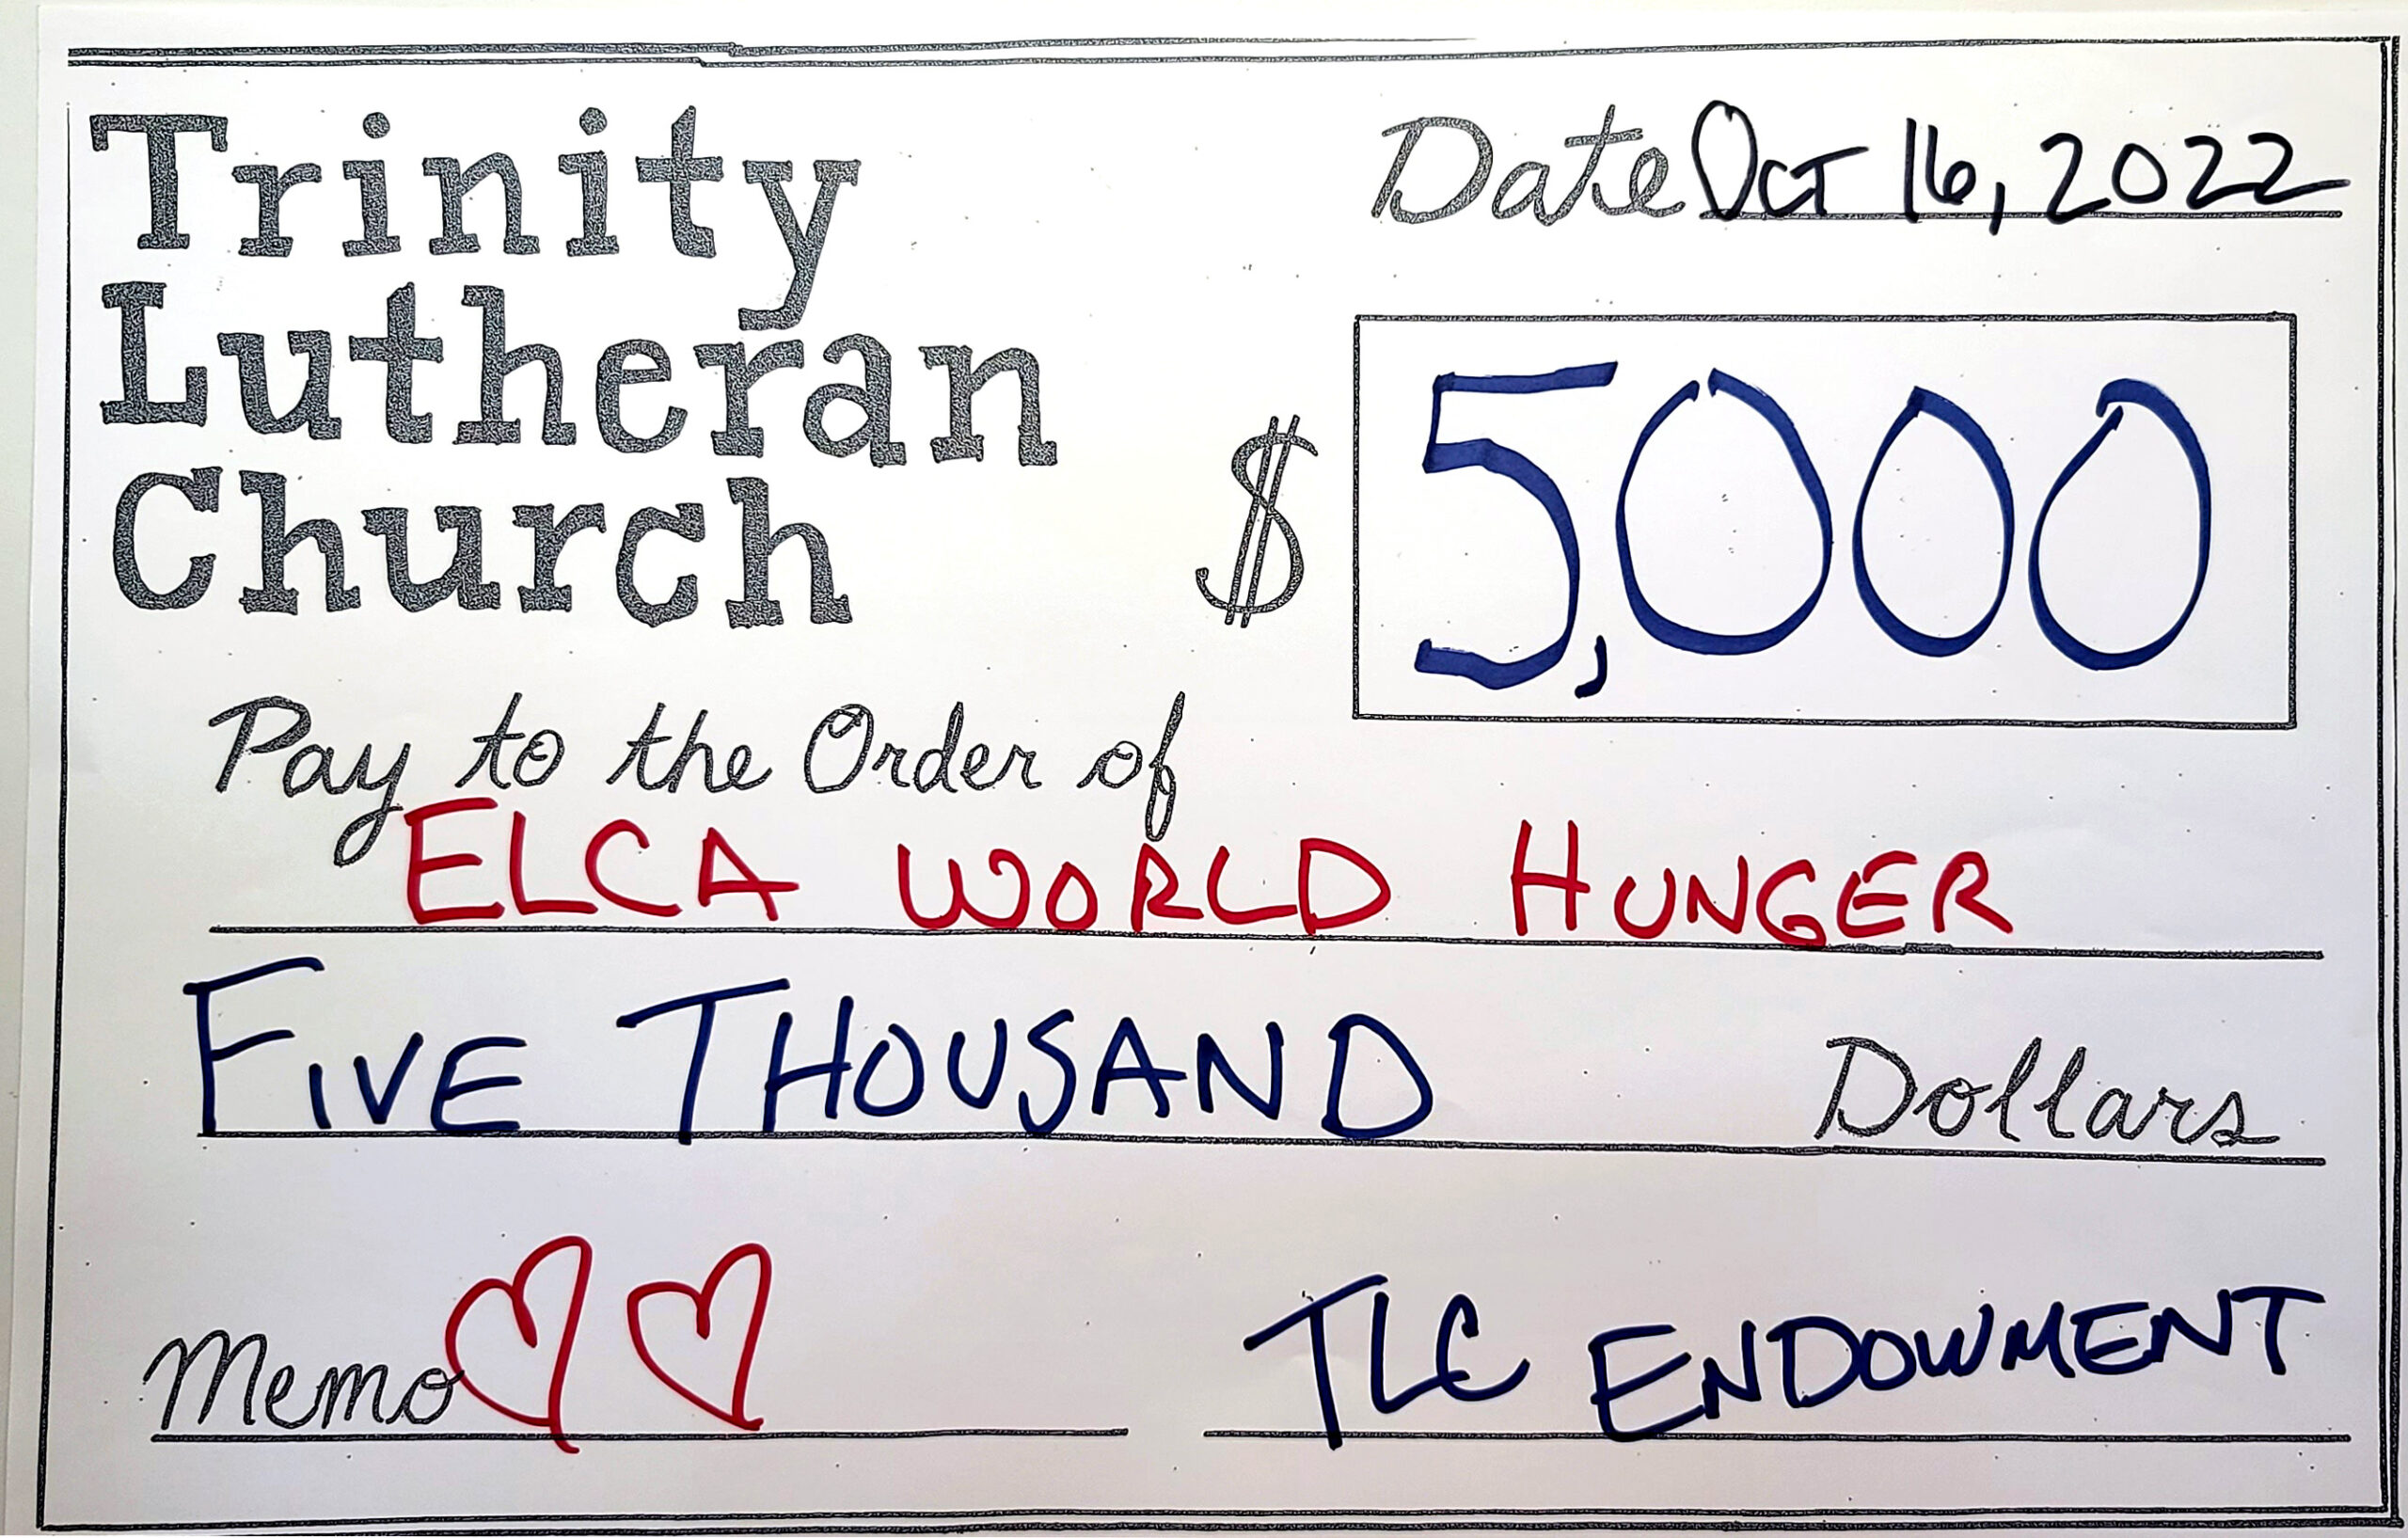 Trinity
Lutheran
Church
Date Oct 16, 2022
$ 5,000
Pay to the Order of
ELCA WORLD HUNGER
FIVE THOUSAND Dollars
Memo
TLC ENDOWMENT